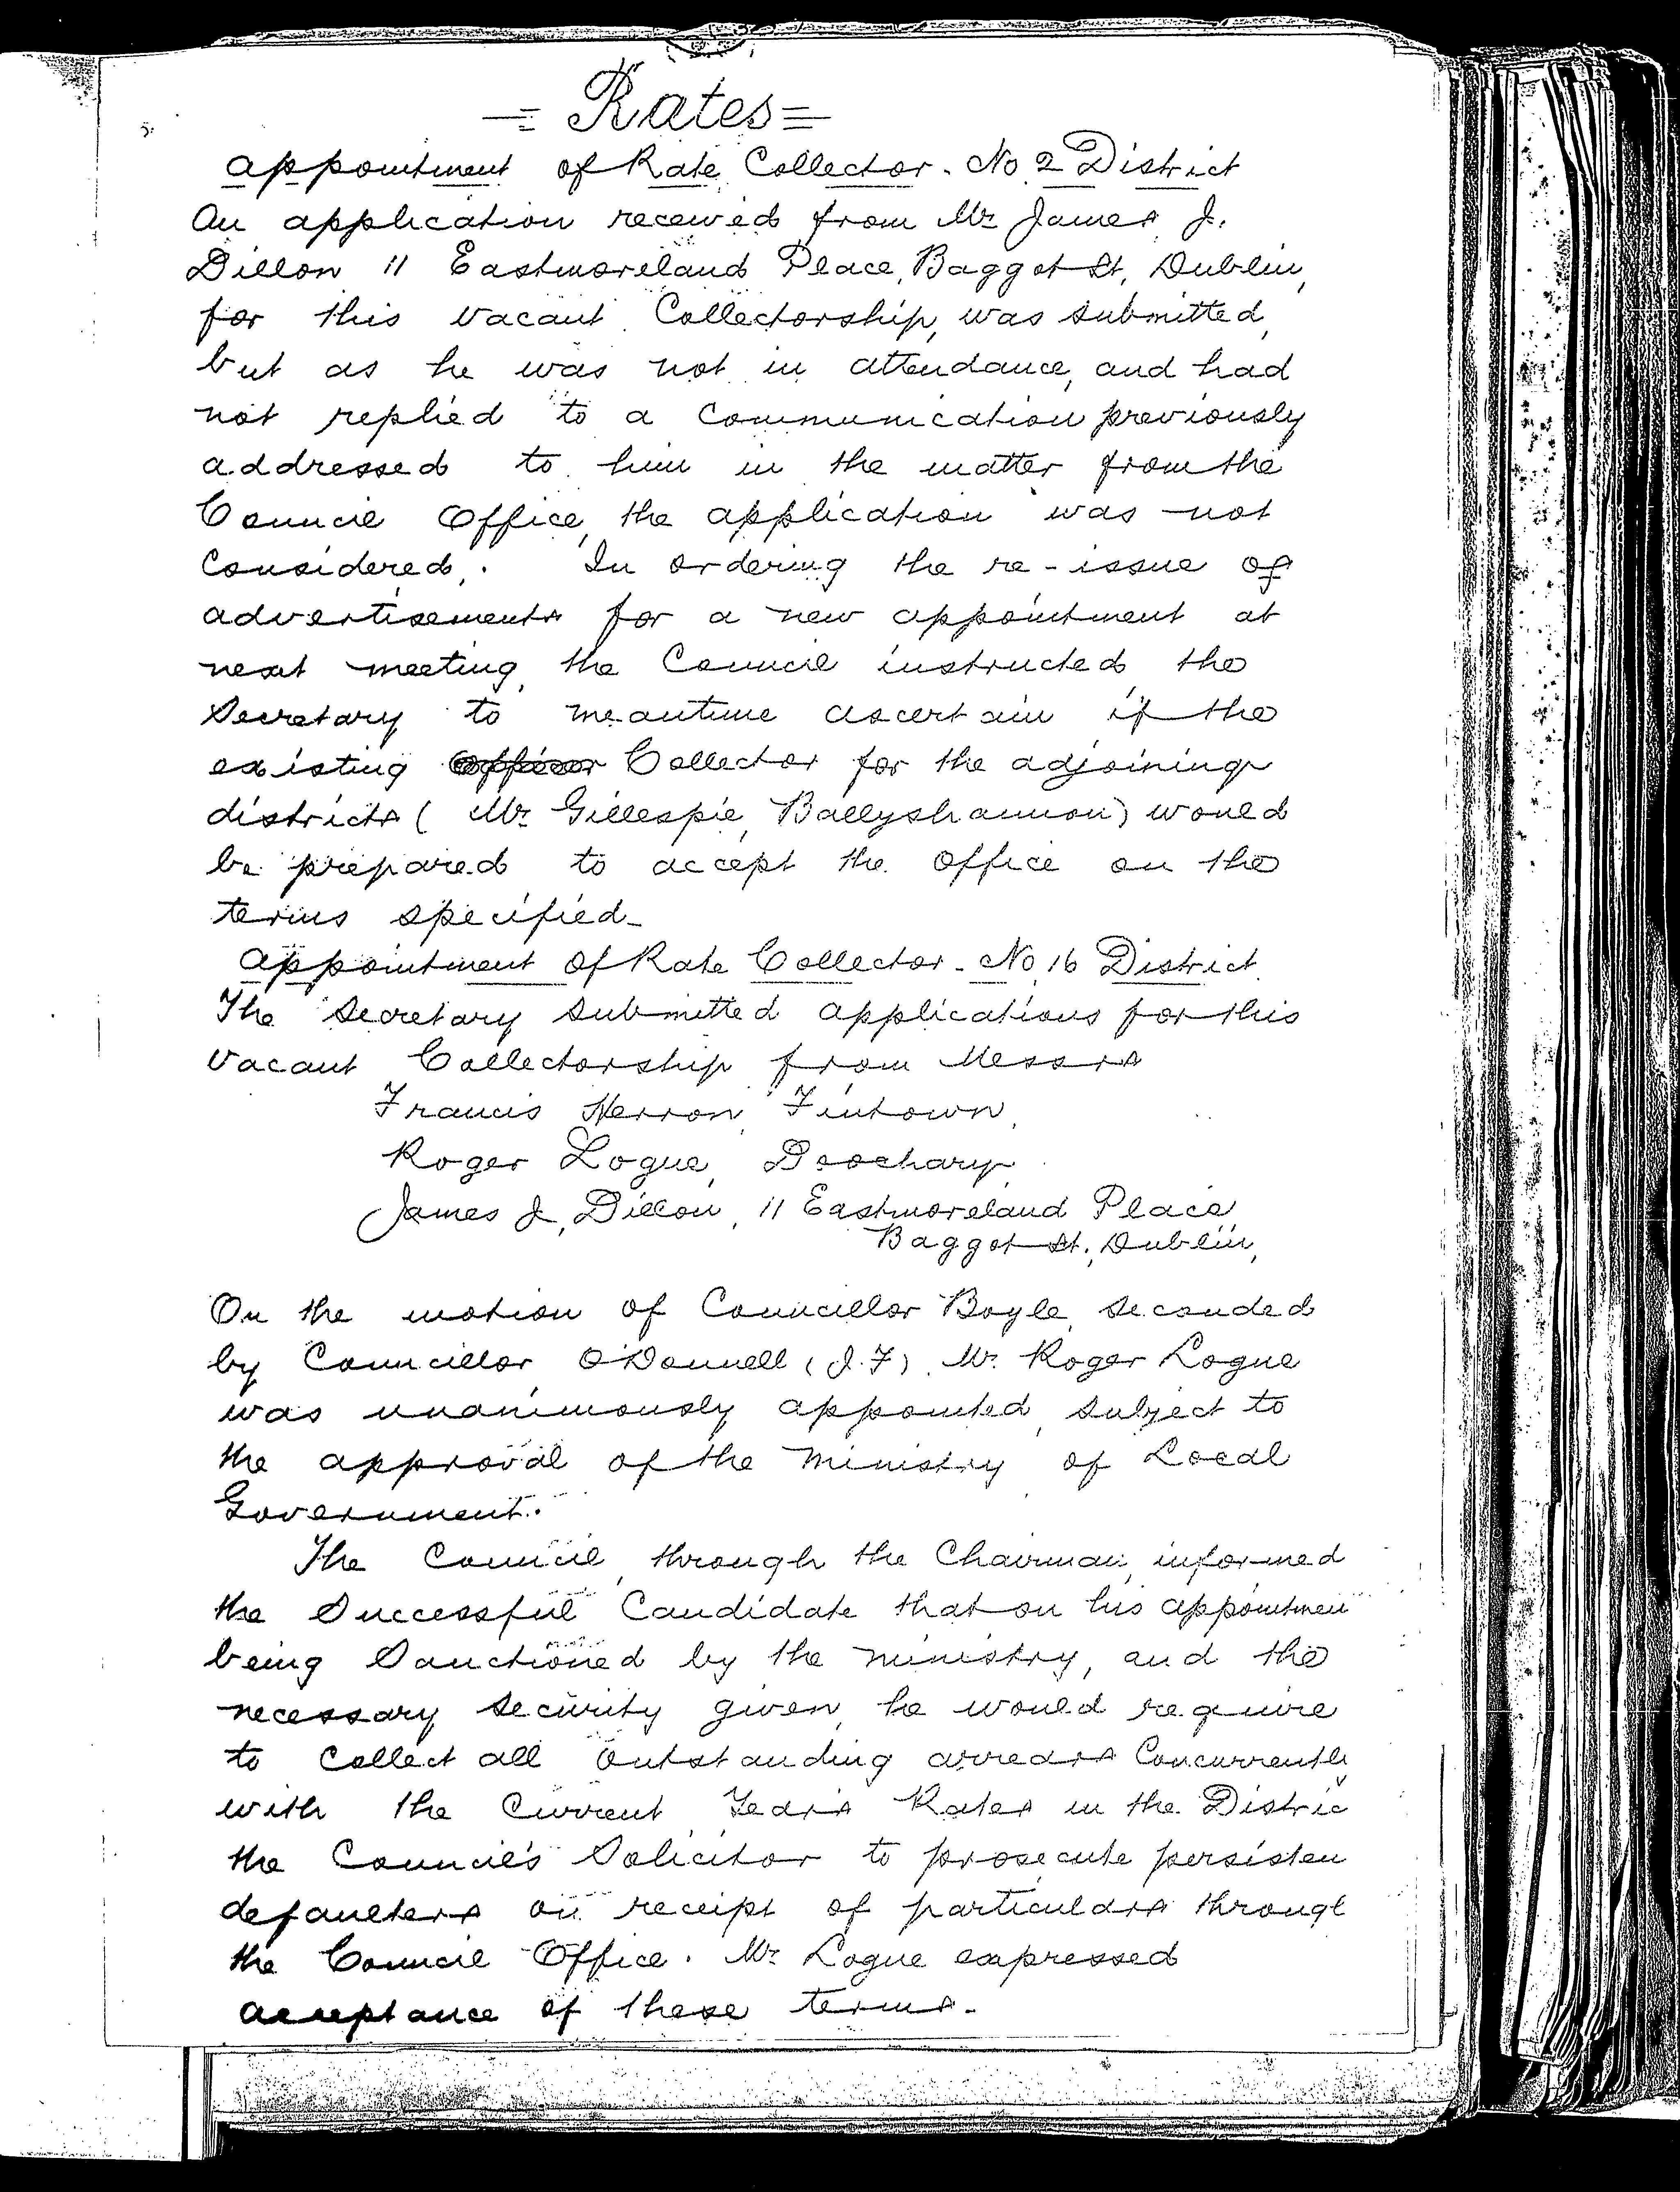 = Rates =
Appointment of Rate Collector - No 2 District
An application received from Mr James J.
Dillon 11 Eastmoreland Place, Baggot St, Dublin,
for this vacant Collectorship, was submitted,
but as he was not in attendance, and had
not replied to a communication previously
addressed to him in the matter from the
Council Office, the application was not
considered. In ordering the re-issue of
advertisements for a new appointment at
next meeting, the Council instructed the
Secretary to meantime ascertain if the
existing Collector for the adjoining
districts ( Mr Gillespie, Ballyshannon) would
be prepared to accept the office on the
terms specified-
Appointment of Rate Collector - No 16 District.
The Secretary submitted applications for this
vacant Collectorship from Messrs
Francis Herron, Fintown,
Roger Logue, Doochary,
James J, Dillon, 11 Eastmoreland Place
Baggot St., Dublin,
On the motion of Councillor Boyle, seconded
by Councillor O'Donnell (J.F), Mr. Roger Logue
was unanimously appointed, subject to
the approval of the Ministry of Local
Government.
The Council, through the Chairman, informed
the Successful Candidate that on his appointmen
being Sanctioned by the ministry, and the
necessary security given, he would require
to collect all outstanding arrears Concurrently
with the Current Years Rates in the Distric
the Council's Solicitor to prosecute persisten
defaulters on receipt of particulars through
the Council Office. Mr Logue expressed
acceptance of these terms.-